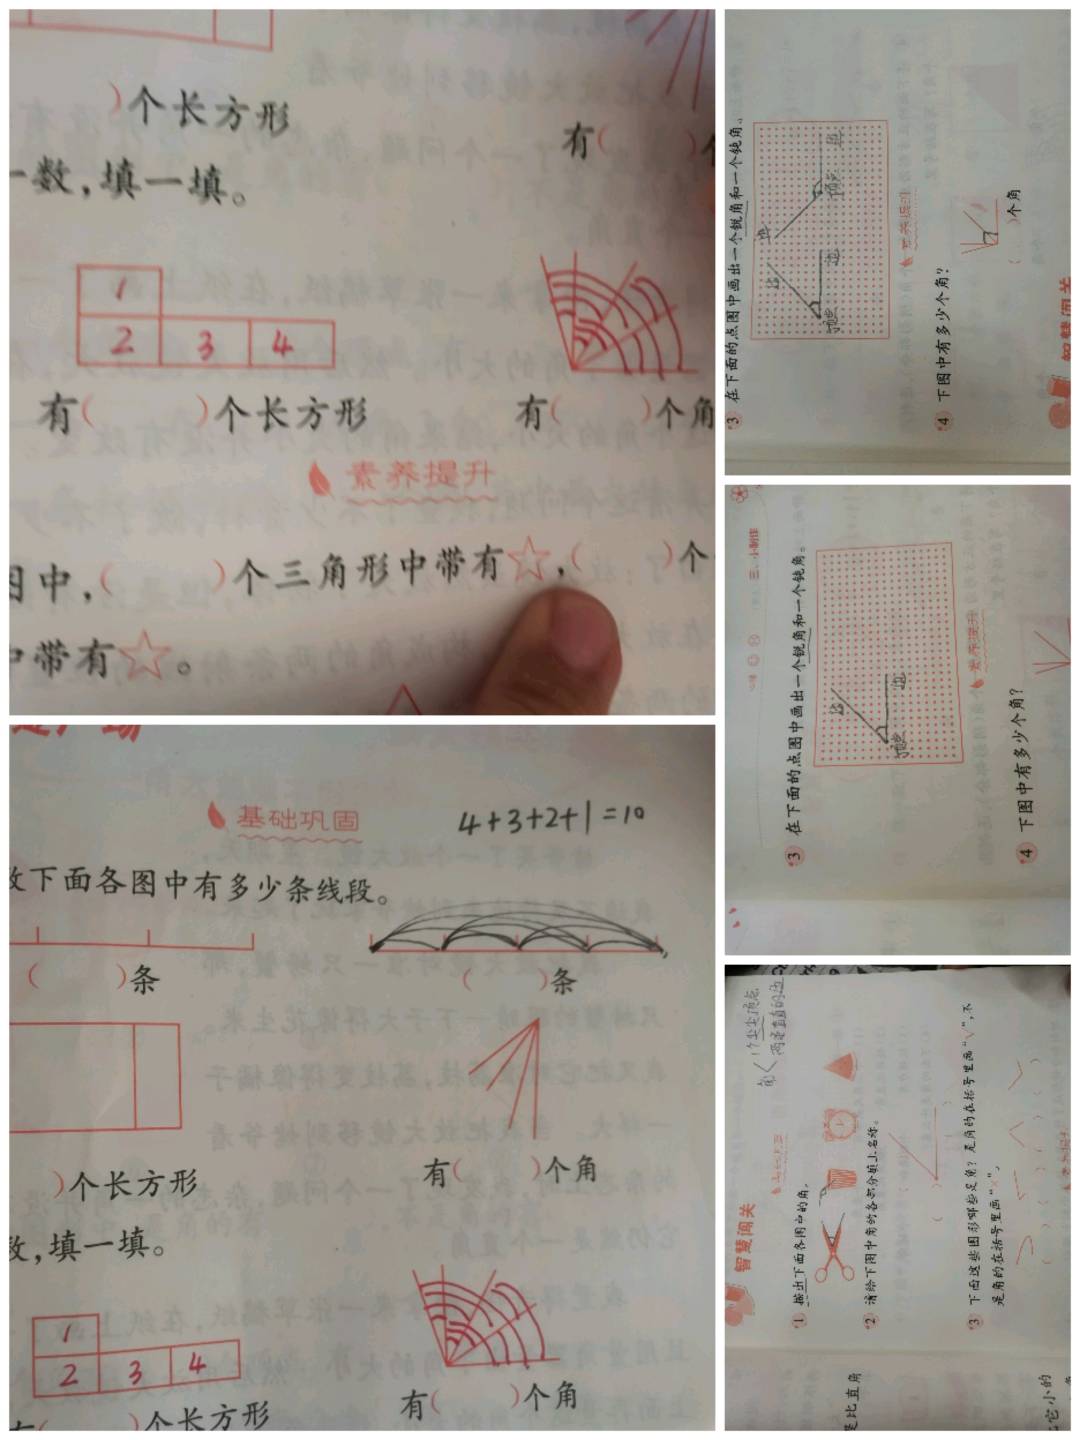 ( )个长方形
有( )个
一数，填一填。
1
2 3 4
有( )个长方形
有( )个角
素养提升
图中，( )个三角形中带有☆，( )个
中带有☆。
基础巩固
4+3+2+1=10
数下面各图中有多少条线段。
( )条
( )条
)个长方形
有( )个角
数，填一填。
1
2 3 4
有( )个长方形
有( )个角
3 在下面的点图中画出一个锐角和一个钝角。
边
边
顶点
边
边
顶点
素养提升
4 下图中有多少个角?
( )个角
智慧闯关
3 在下面的点图中画出一个锐角和一个钝角。
边
边
顶点
素养提升
4 下图中有多少个角?
角
1个尖尖顶点
两条直直的边
智慧闯关
1 找出下面各图中的角。
2 请给下图中角的各部分填上名称。
( )
( )
3 下面这些图形哪些是角? 是角的在括号里画“√”，不
是角的在括号里画“×”。
( ) ( ) ( ) ( )
是比直角
它小的